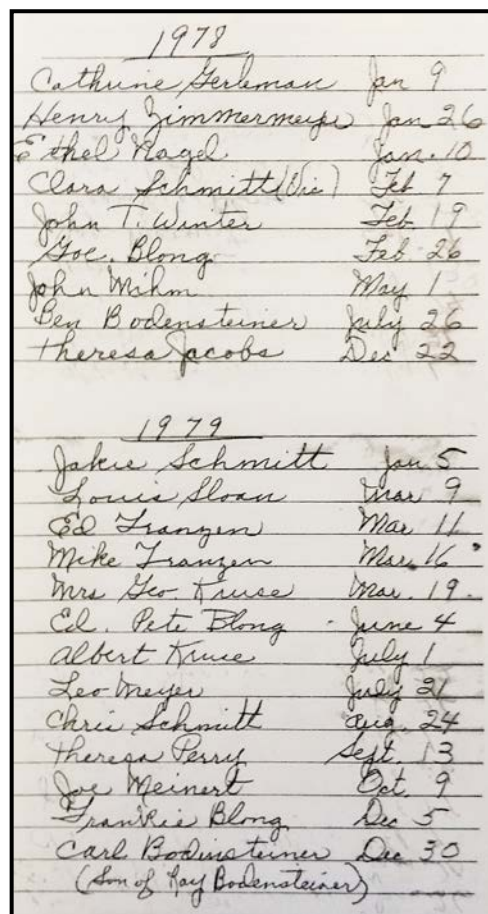 1978
Cathrine Gerleman Jan 9
Henry Zimmermeyer Jan 26
Ethel Nagel Jan. 10
Clara Schmitt (Vic) Feb 7
John T. Winter Feb 19
Geo. Blong Feb 26
John Mihm May 1
Ben Bodensteiner July 26
Theresa Jacobs Dec 22
1979
Jakie Schmitt Jan 5
Louis Sloan Mar 9
Ed Franzen Mar 11
Mike Franzen Mar 16
Mrs Geo. Kruse Mar. 19.
Ed. Pete Blong - June 4
Albert Kruse July 1
Leo Meyer July 21
Chris Schmitt Aug. 24
Theresa Perry Sept. 13
Joe Meinert Oct. 9
Frankie Blong Dec 5
Carl Bodinsteiner Dec 30
(Son of Ray Bodensteiner)